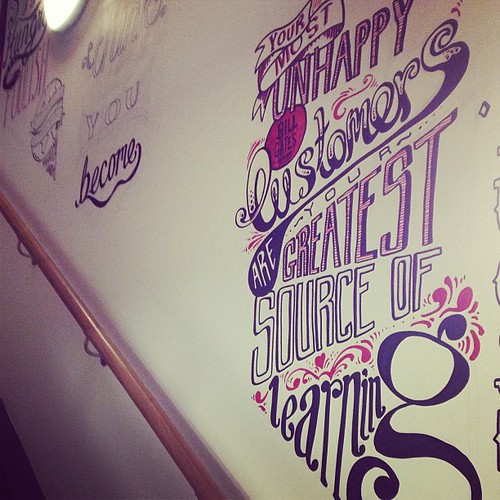 YOUR
MOST
UNHAPPY
BILL
GATES
Customers
ARE
YOUR
GREATEST
SOURCE OF
learning
YOU
become